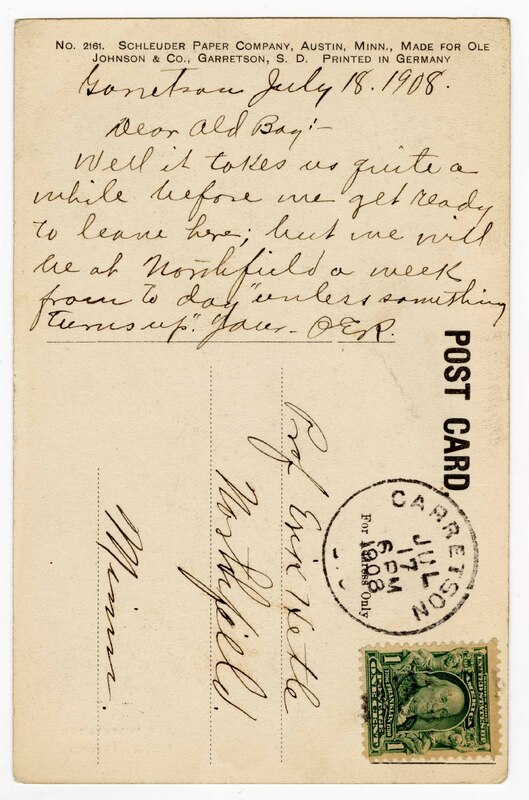 No. 2161. Schleuder Paper Company, Austin, Minn., Made for Ole
Johnson & Co., Garretson, S. D. Printed in Germany
Garretson July 18. 1908.
Dear Old Boy:-
Well it takes us quite a
while before we get ready
to leave here; but we will
be at Northfield a week
from to day "unless something
turns up". Your- O.E.R.
POST CARD
For Address Only
GARRETSON
JUL
17
6 PM
1908
Prof Erik Hetle
Northfield.
Minn.
1 1